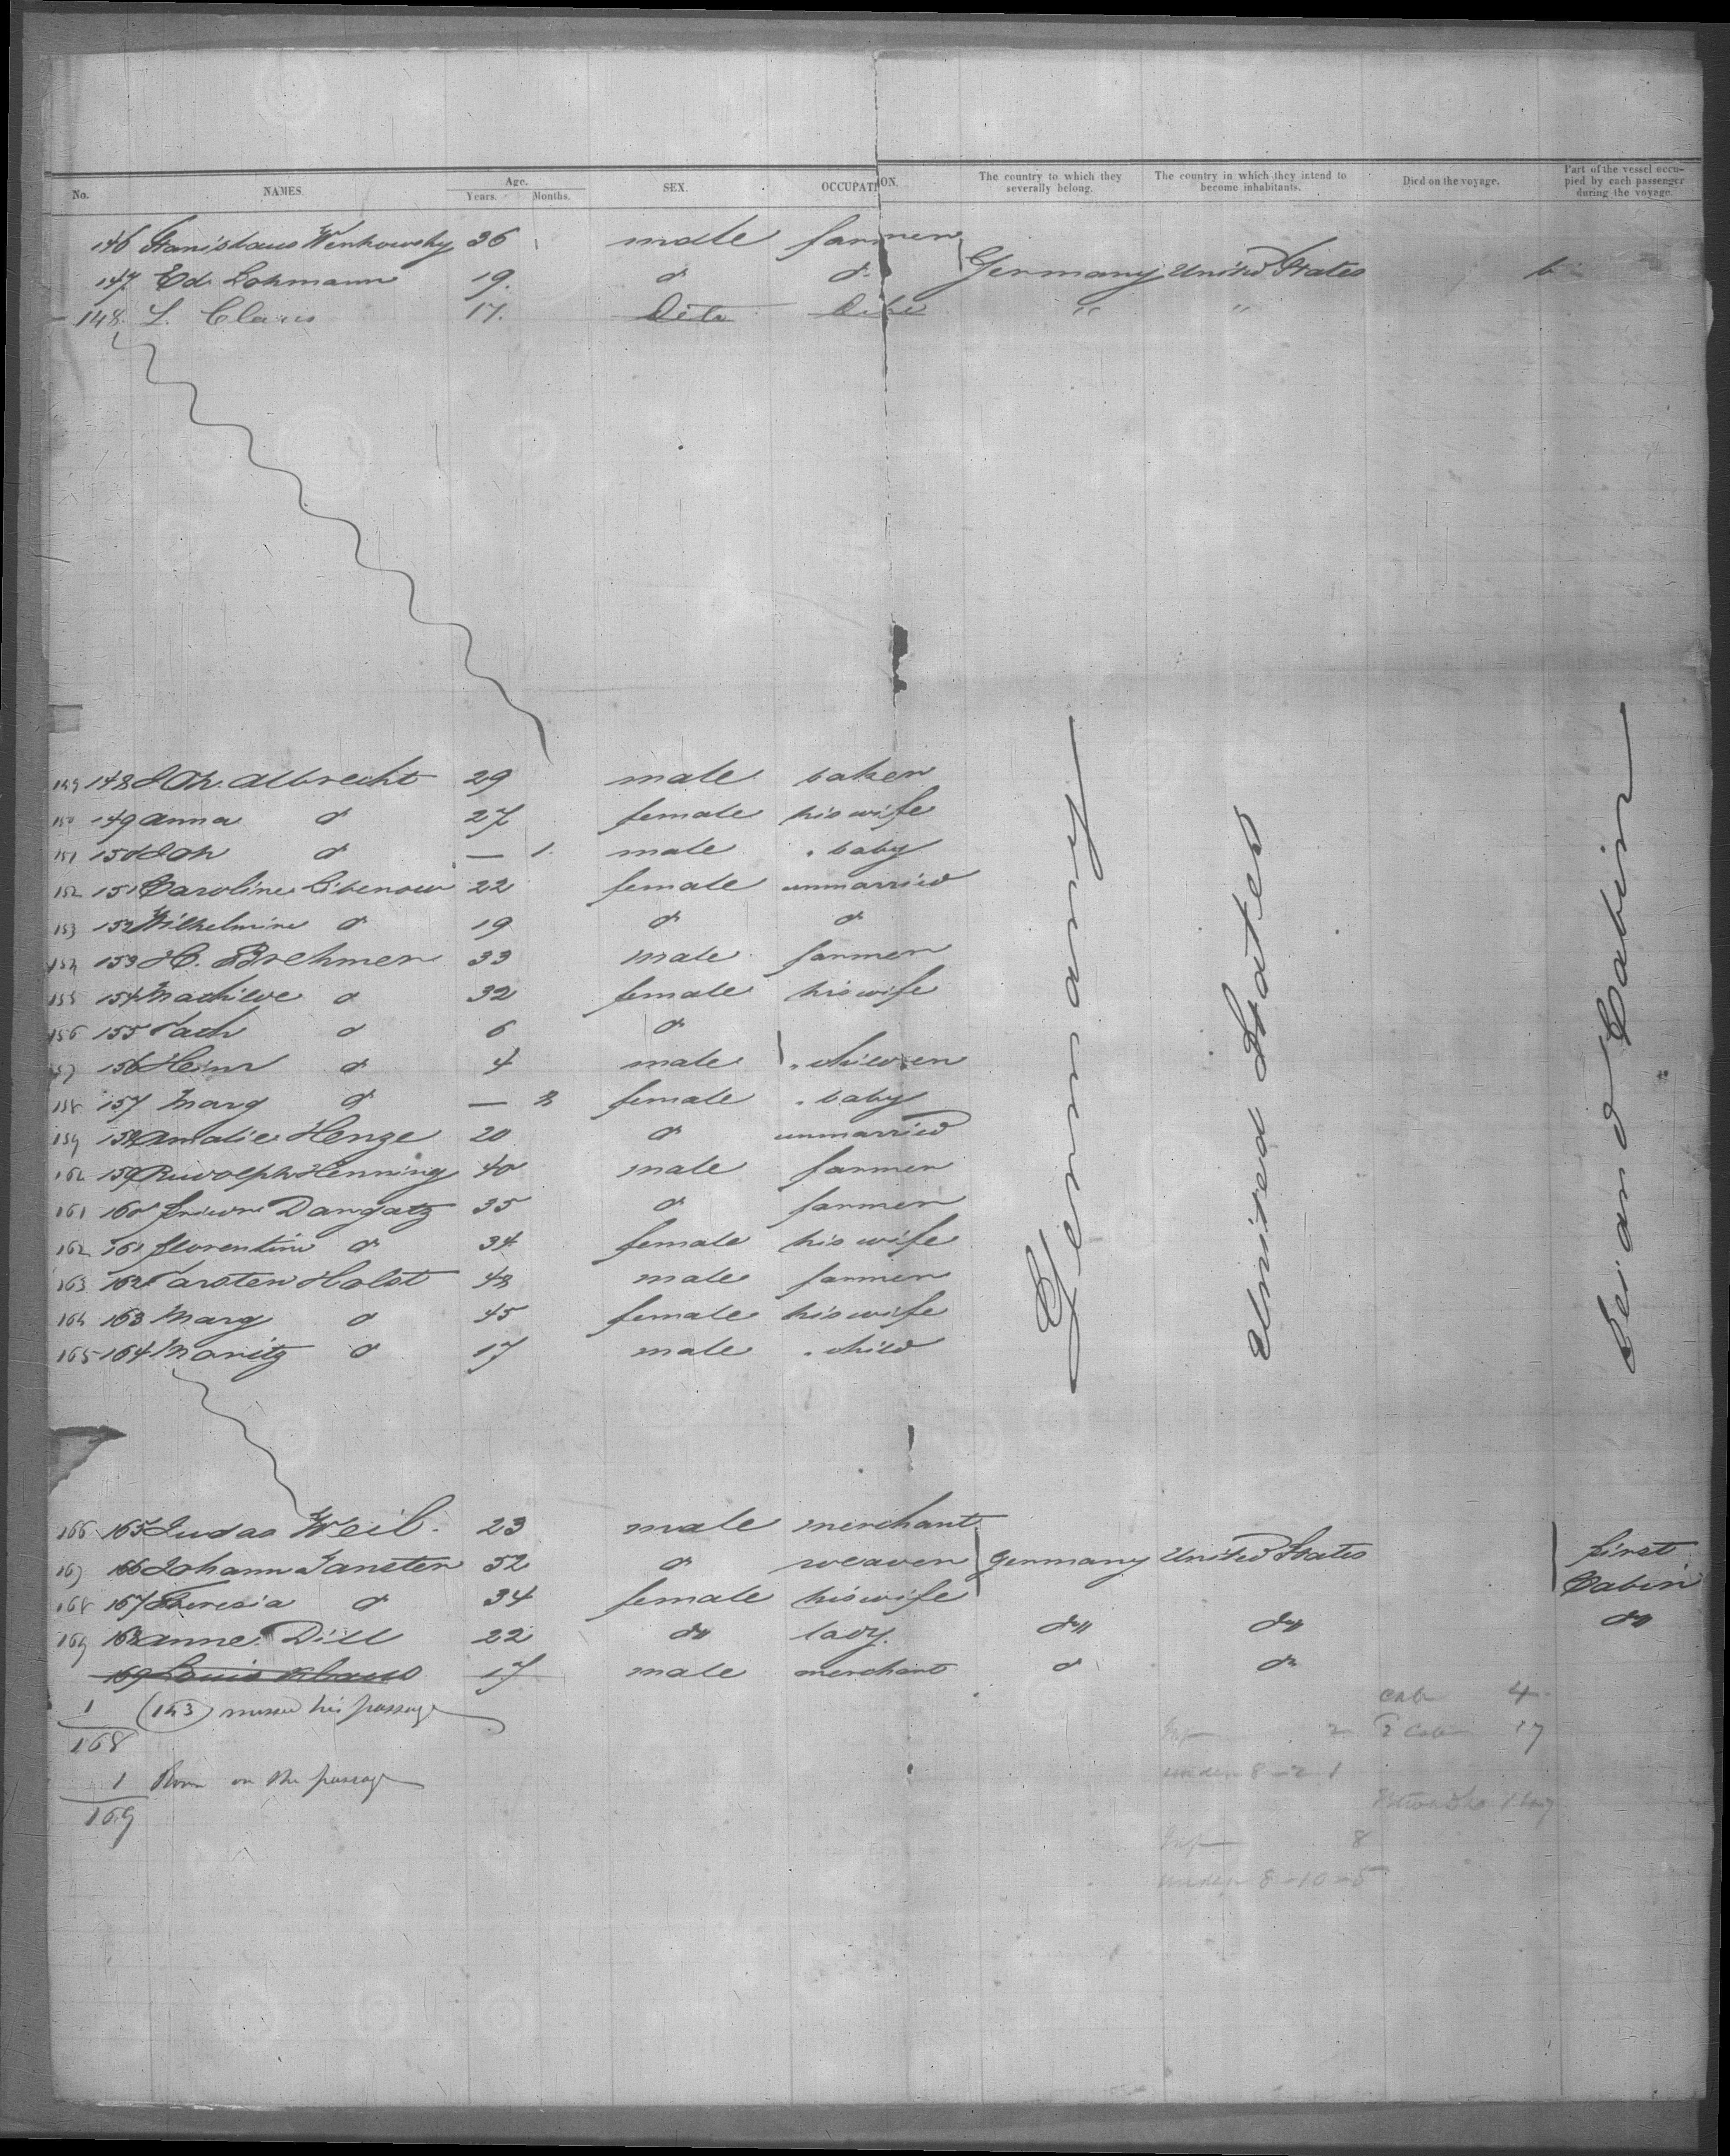 No. NAMES. Age. Years. Months. SEX. OCCUPATION. The country to which they severally belong. The country in which they intend to become inhabitants. Died on the voyage. Part of the vessel occupied by each passenger during the voyage.
146 Stanislaus Wenkowsky 36 male farmer
147. Ed. Lohmann 19. do do Germany United States
148. L. Claus 17. Dito Dito " "
149 148 Joh. Albrecht 29 male baker
150 149 Anna do 27 female his wife
151 150 Joh do — 1. male " baby
152 151 Caroline Libenow 22 female unmarried
153 152 Wilhelmine do 19 do do
154 153 H. Brehmer 33 male farmer
155 154 Mathilde do 32 female his wife
156 155 do 6 do
157 156 Heinr do 4 male " children
158 157 Marg do — female " baby
159 158 Amalie Henze 20 do unmarried
160 159 Rudolph Henning 40 male farmer
161 160 Dargatz 35 do farmer
162 161 Florentine do 34 female his wife
163 162 Carsten Holst 48 male farmer
164 163 Marg do 45 female his wife
165 164 Moritz do 17 male " child
Germany
United States
Second Cabin
166 165 Judas Weil. 23 male merchant
167 166 Johann 52 do weaver Germany United States first
168 167 Theresia do 34 female his wife Cabin
169 168 Anne Dill 22 do lady. do do do
169 Louis Claus 17 male merchant do do
1 (143) missed his passage
168
1 Born on the passage
169
cab 4
2 2 Cab 17
under 8 - 2 1
8
under 8 - 10 - 5